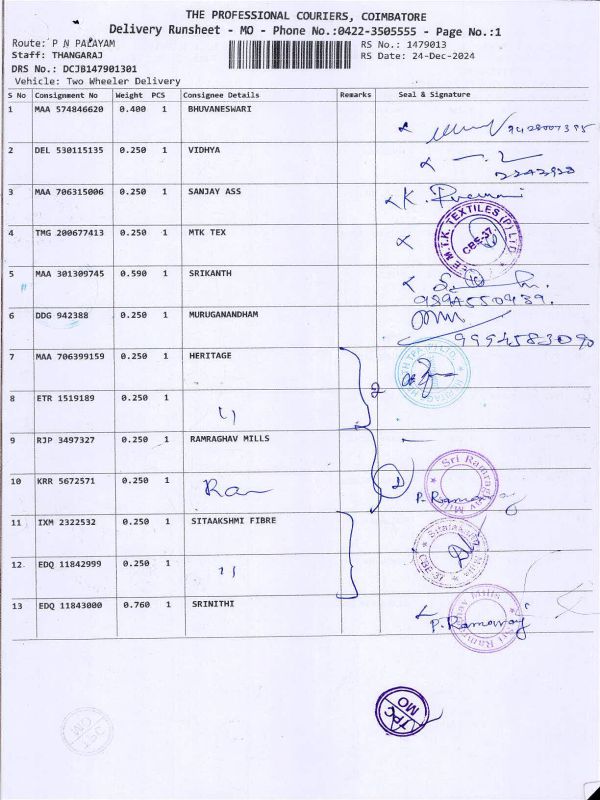 THE PROFESSIONAL COURIERS, COIMBATORE
Delivery Runsheet - MO - Phone No.:0422-3505555 - Page No.:1
Route: P N PALAYAM
RS No.: 1479013
Staff: THANGARAJ
RS Date: 24-Dec-2024
DRS No.: DCJB147901301
Vehicle: Two Wheeler Delivery
S No Consignment No Weight PCS Consignee Details Remarks Seal & Signature
1 MAA 574846620 0.400 1 BHUVANESWARI
2 DEL 530115135 0.250 1 VIDHYA
3 MAA 706315006 0.250 1 SANJAY ASS
4 TMG 200677413 0.250 1 MTK TEX
M.T.K. TEXTILES (P) LTD
CBE-37
5 MAA 301309745 0.590 1 SRIKANTH
6 DDG 942388 0.250 1 MURUGANANDHAM
9994583090
7 MAA 706399159 0.250 1 HERITAGE
2
8 ETR 1519189 0.250 1 11
9 RJP 3497327 0.250 1 RAMRAGHAV MILLS
10 KRR 5672571 0.250 1 Ram
Sri Ramragav Mills
11 IXM 2322532 0.250 1 SITAAKSHMI FIBRE
CBE-37
12 EDQ 11842999 0.250 1 11
13 EDQ 11843000 0.760 1 SRINITHI
P. Ramaraj
Sri Ramragav Mills
TPC
MO